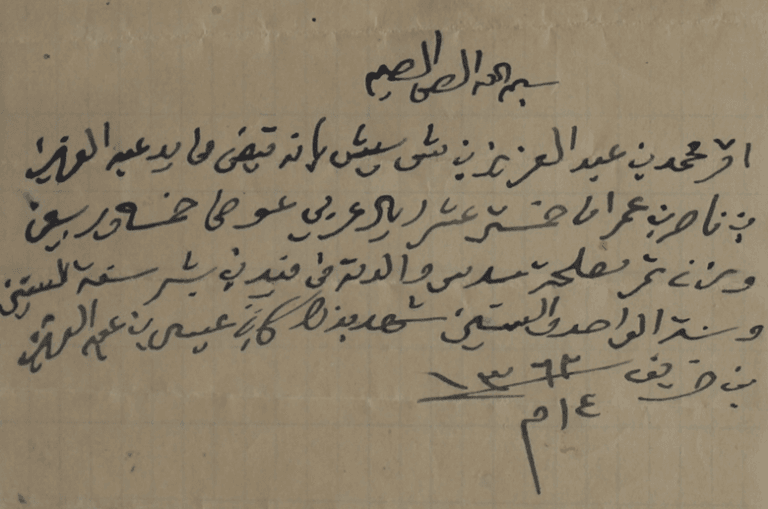 بسم الله الرحمن الرحيم
اقر محمد بن عبد العزيز بن بانه قبض من يد عبد العزيز
بن ناصر بن عمران خمسة عشر ريال عربي عوض خمسه واربعين
وزنة تمر مصلحة سدس والدته في بشر سنة الستين
وسنة الواحد والستين شهد بذلك كاتبه عيسى بن عبد العزيز
بن ١٣٦٣
١٤ م